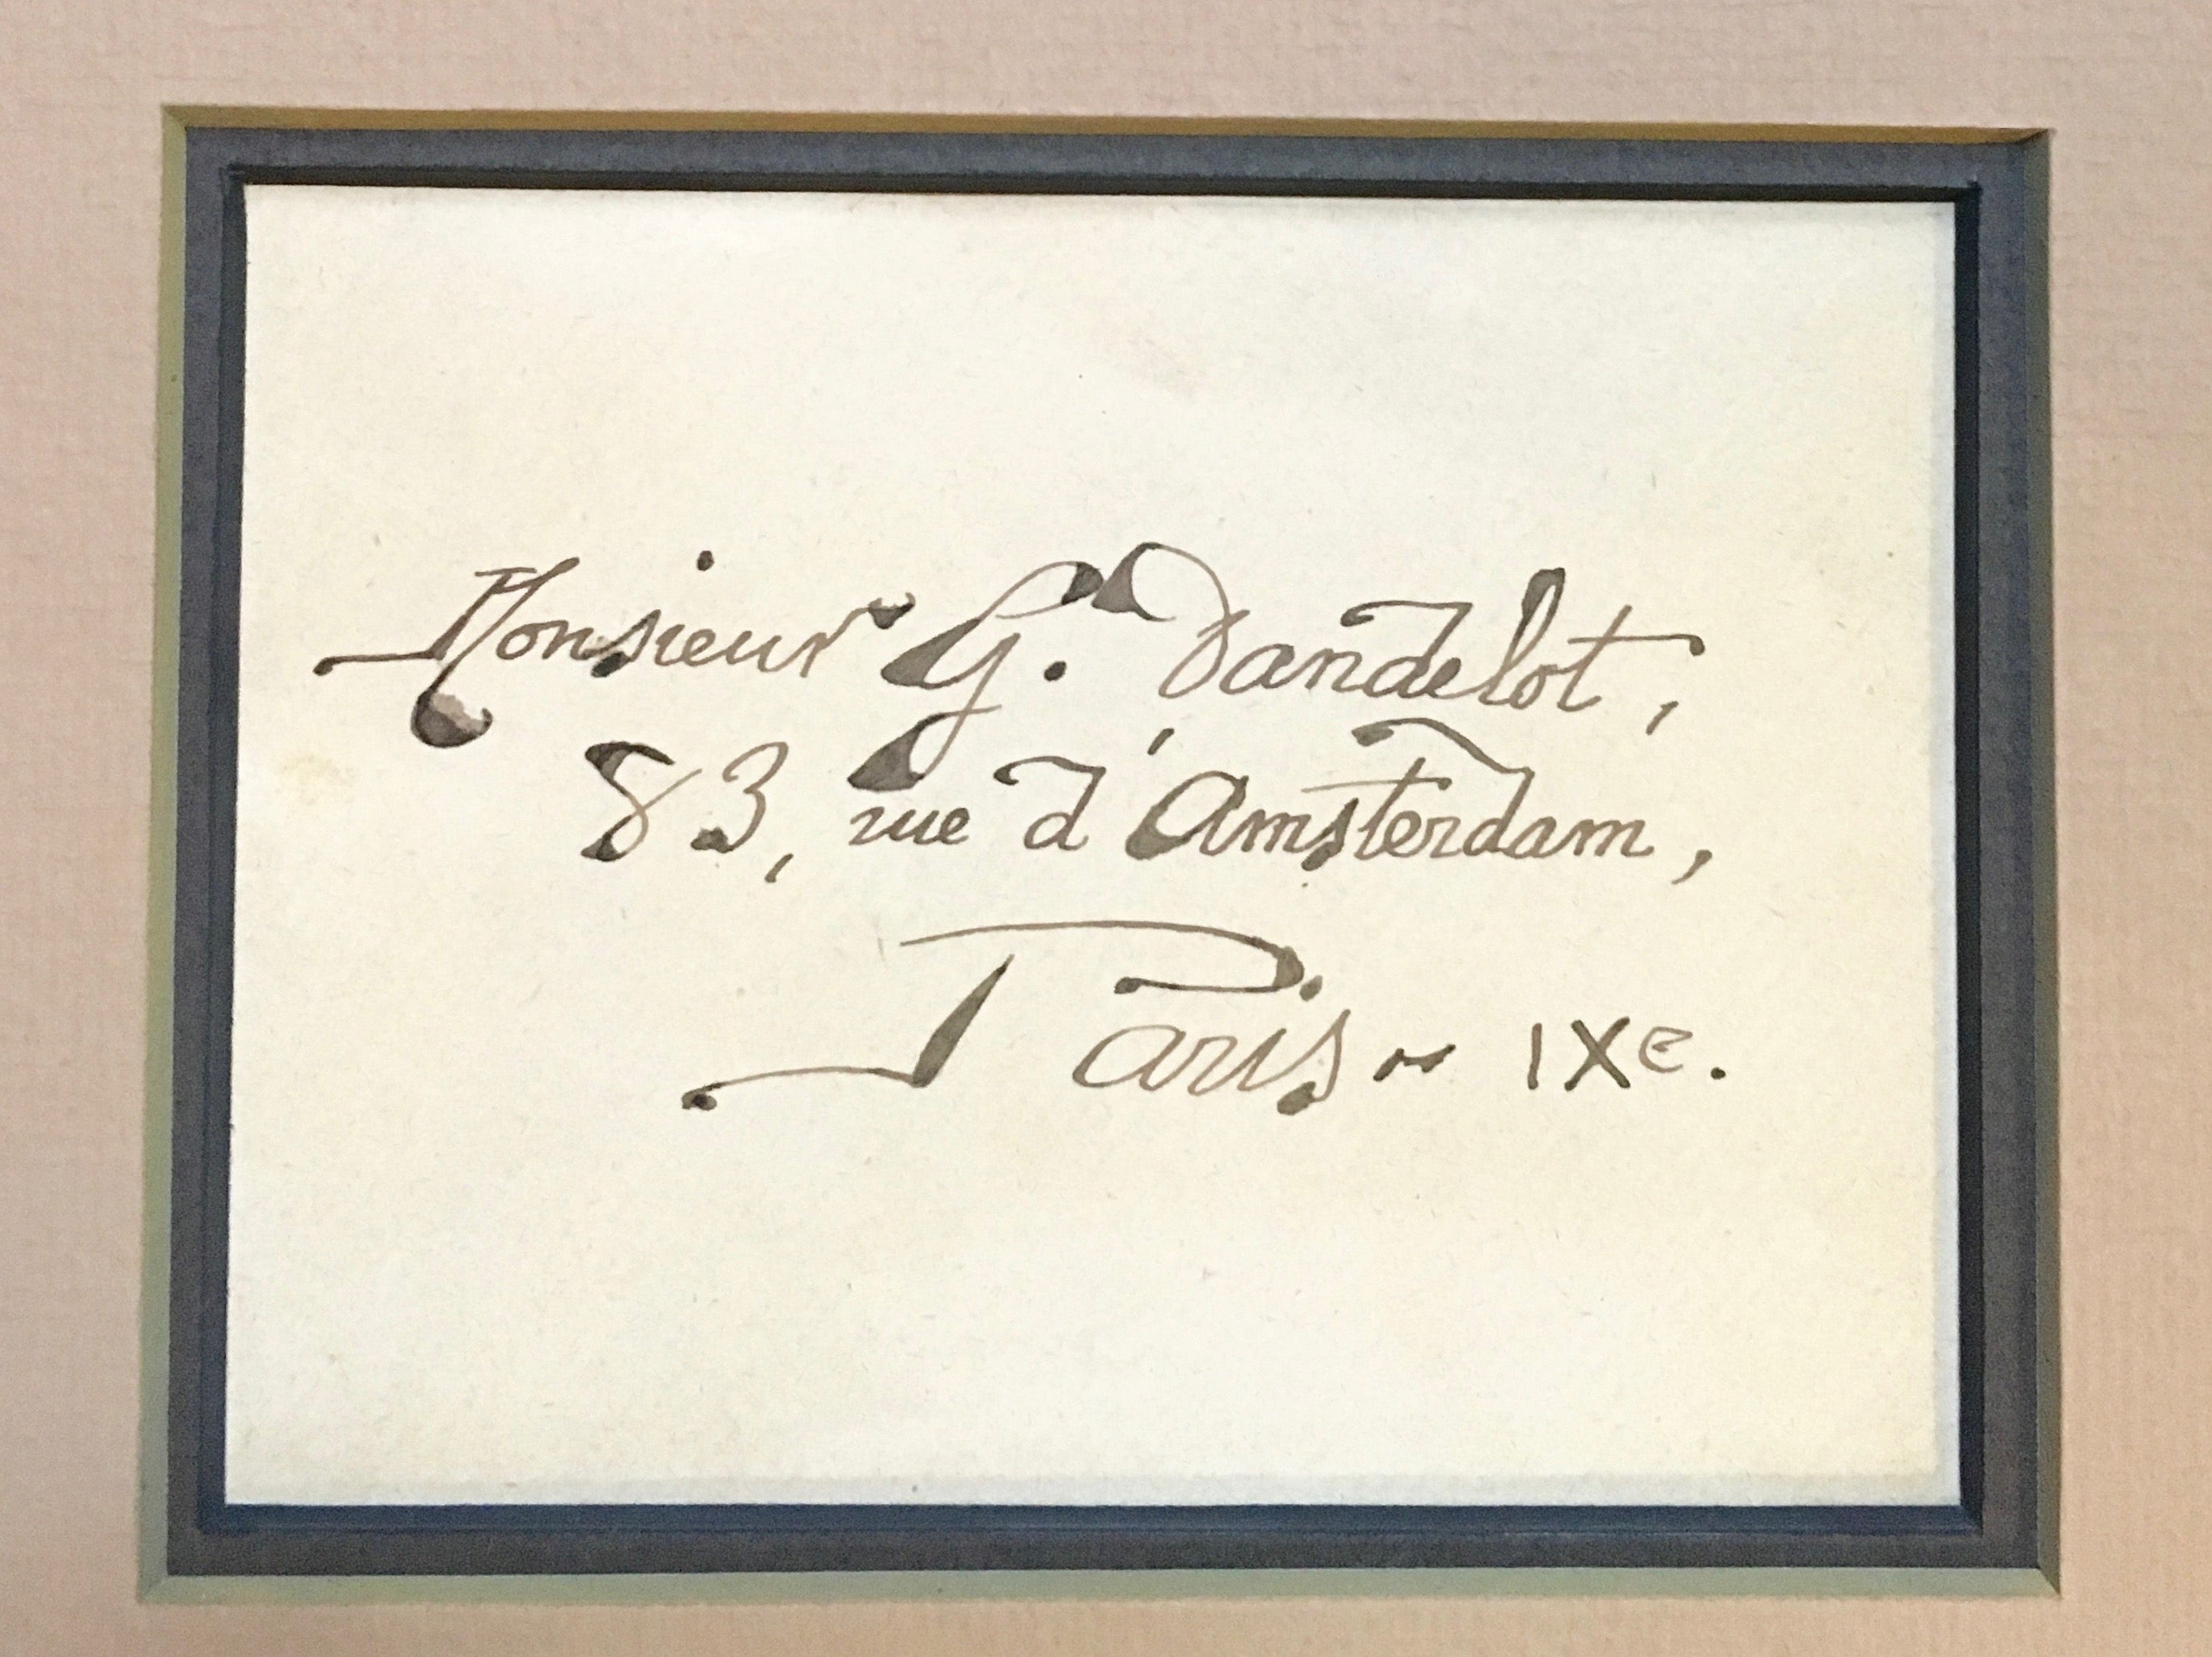 Monsieur G. Dandelot,
83, rue d'Amsterdam,
Paris ~ IXe.